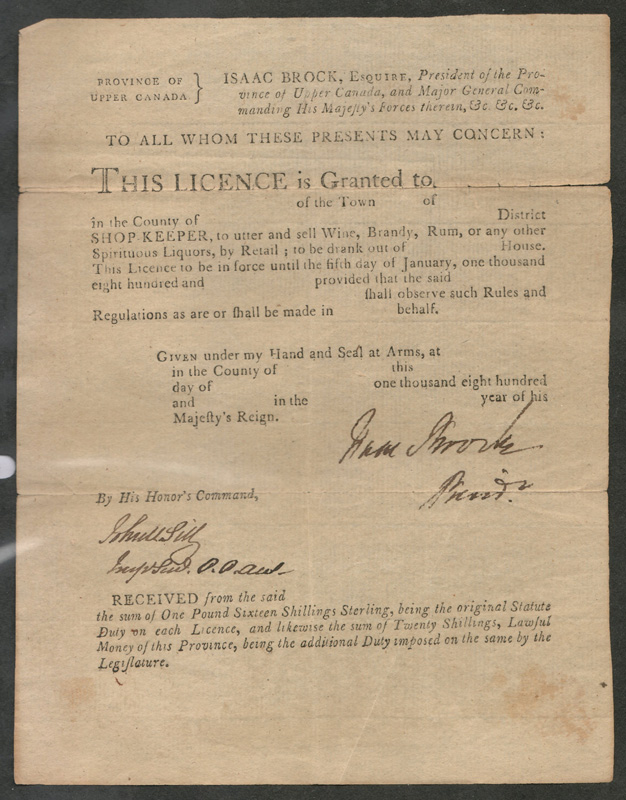 PROVINCE OF
UPPER CANADA }
ISAAC BROCK, Esquire, President of the Pro-
vince of Upper Canada, and Major General Com-
manding His Majeſty's Forces therein, &c. &c. &c.
TO ALL WHOM THESE PRESENTS MAY CONCERN:
THIS LICENCE is Granted to,
of the Town of
in the County of District
SHOP-KEEPER, to utter and sell Wine, Brandy, Rum, or any other
Spirituous Liquors, by Retail; to be drank out of House.
This Licence to be in force until the fifth day of January, one thousand
eight hundred and provided that the said
ſhall observe such Rules and
Regulations as are or ſhall be made in behalf.
GIVEN under my Hand and Seal at Arms, at
in the County of this
day of one thousand eight hundred
and in the year of his
Majeſty's Reign.
Isaac Brock
Presidt.
By His Honor's Command,
RECEIVED from the said
the sum of One Pound Sixteen Shillings Sterling, being the original Statute
Duty on each Licence, and likewise the sum of Twenty Shillings, Lawful
Money of this Province, being the additional Duty imposed on the same by the
Legiſlature.